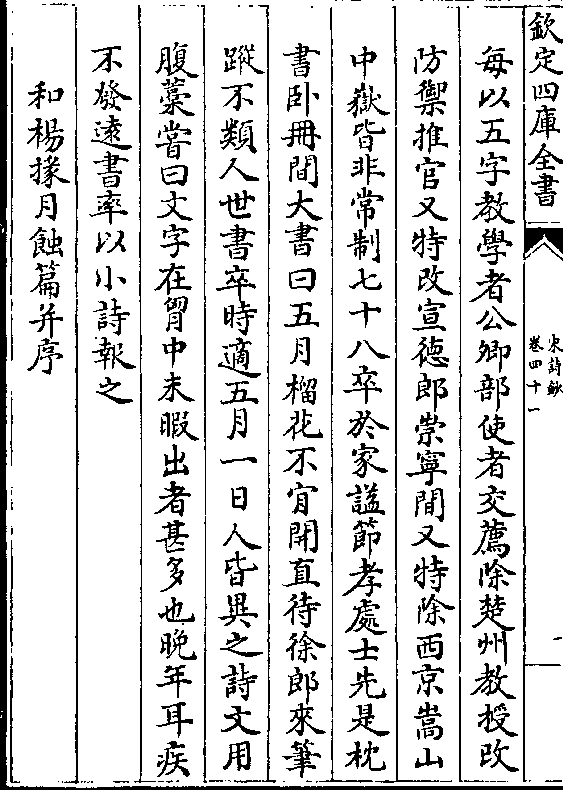 欽定四庫全書
宋詩鈔
卷四十一
一
每以五字教學者公卿部使者交薦除楚州教授改
防禦推官又特改宣德郎崇寧間又特除西京嵩山
中嶽皆非常制七十八卒於家諡節孝處士先是枕
書卧冊間大書曰五月榴花不肯開直待徐郎來筆
蹤不類人世書卒時適五月一日人皆異之詩文用
腹藁嘗曰文字在胷中未暇出者甚多也晚年耳疾
不發逺書率以小詩報之
和楊掾月蝕篇并序